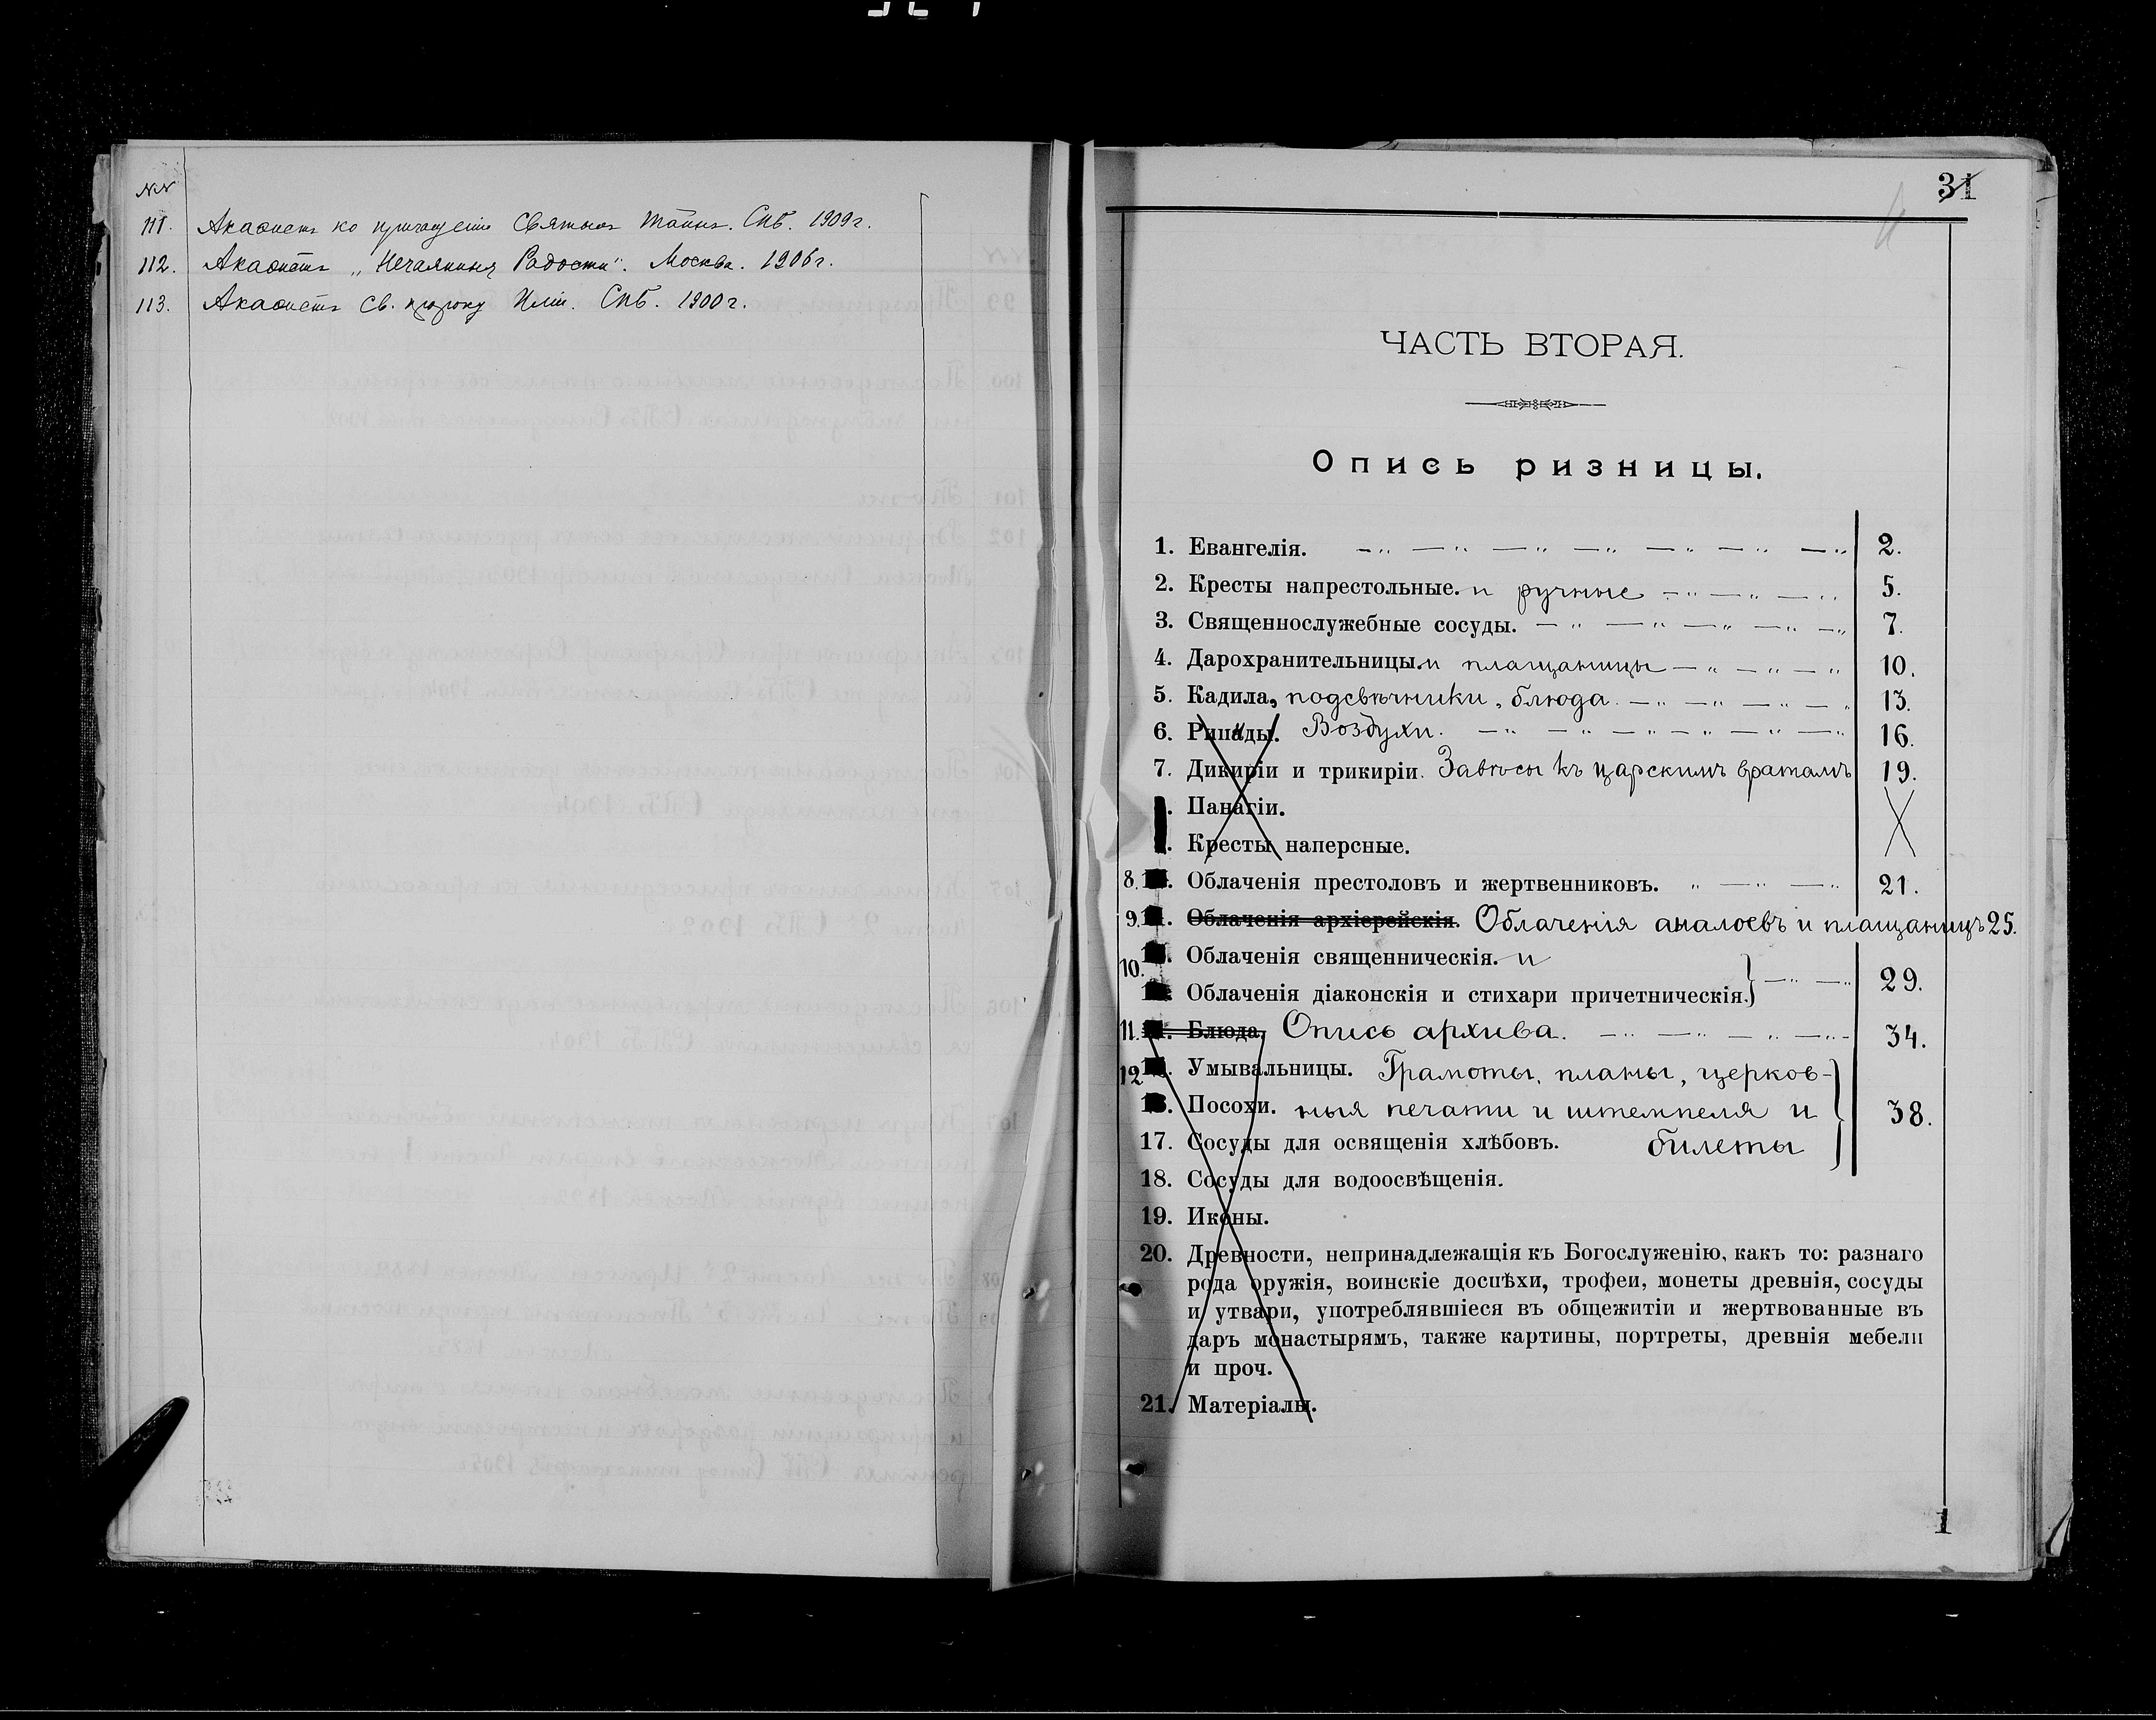 NN
111. Акаѳистъ ко причащенію Святыхъ Таинъ. СПБ. 1909 г.
112. Акаѳистъ „Нечаянныя Радости". Москва. 1906 г.
113. Акаѳистъ Св. пророку Иліи. СПБ. 1900 г.
31
ЧАСТЬ ВТОРАЯ.
Опись ризницы.
1. Евангелія. 2.
2. Кресты напрестольные. и ручные 5.
3. Священнослужебные сосуды. 7.
4. Дарохранительницы. и плащаницы 10.
5. Кадила, подсвѣчники, блюда. 13.
6. Рипиды. Воздухи. 16.
7. Дикиріи и трикиріи. Завѣсы къ царскимъ вратамъ 19.
Панагіи.
Кресты наперсные.
8. Облаченія престоловъ и жертвенниковъ. 21.
9. Облаченія архіерейскія. Облаченія аналоевъ и плащаницъ 25.
10. Облаченія священническія. и
Облаченія діаконскія и стихари причетническія. 29.
11. Блюда. Опись архива. 34.
12 Умывальницы. Грамоты, планы, церков-
Посохи. ныя печати и штемпеля и 38.
17. Сосуды для освященія хлѣбовъ. билеты
18. Сосуды для водоосвѣщенія.
19. Иконы.
20. Древности, непринадлежащія къ Богослуженію, какъ то: разнаго
рода оружія, воинскіе доспѣхи, трофеи, монеты древнія, сосуды
и утвари, употреблявшіеся въ общежитіи и жертвованные въ
даръ монастырямъ, также картины, портреты, древнія мебели
и проч.
21. Матеріалы.
1